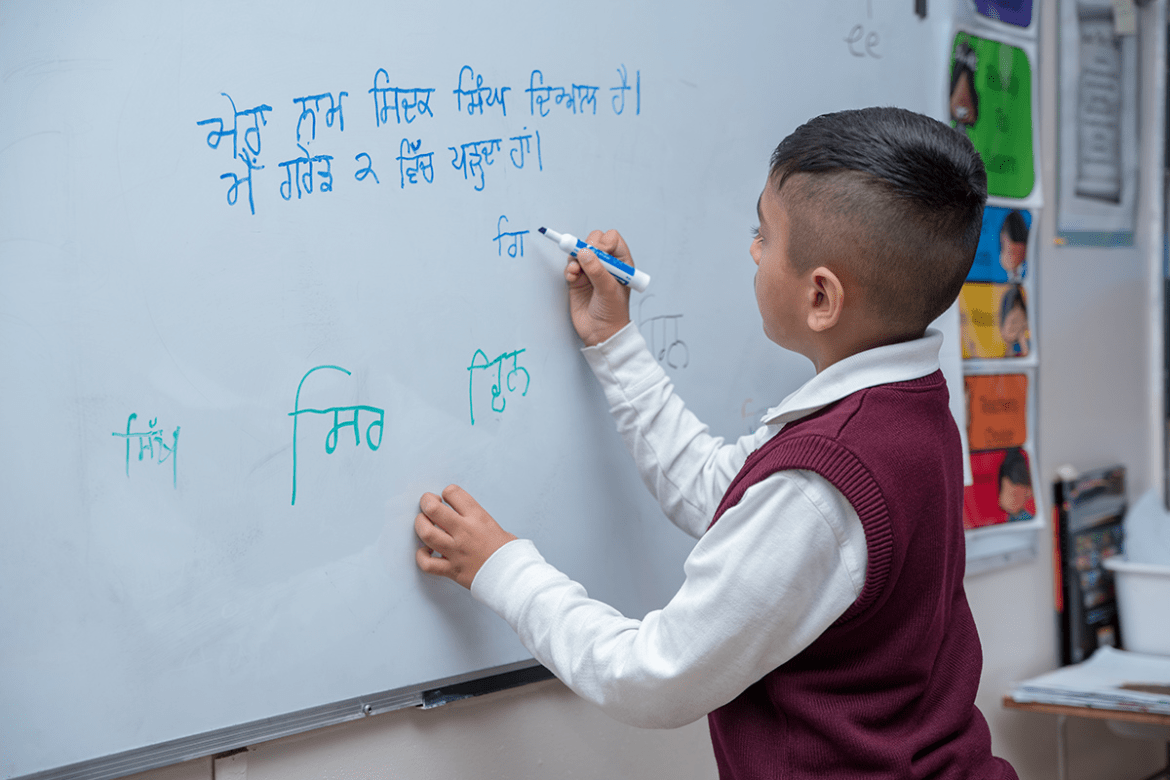 ਮੇਰਾ ਨਾਮ ਸਿਦਕ ਸਿੰਘ ਦਿਆਲ ਹੈ।
ਮੈਂ ਗਰੇਡ ੨ ਵਿੱਚ ਪੜ੍ਹਦਾ ਹਾਂ।
ਗਿ
ਸਿੱਖ ਸਿਰ ਦਿਨ
ee